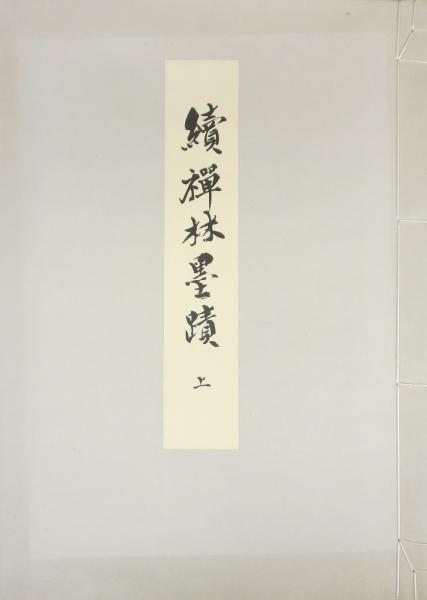 續禪林墨蹟 上